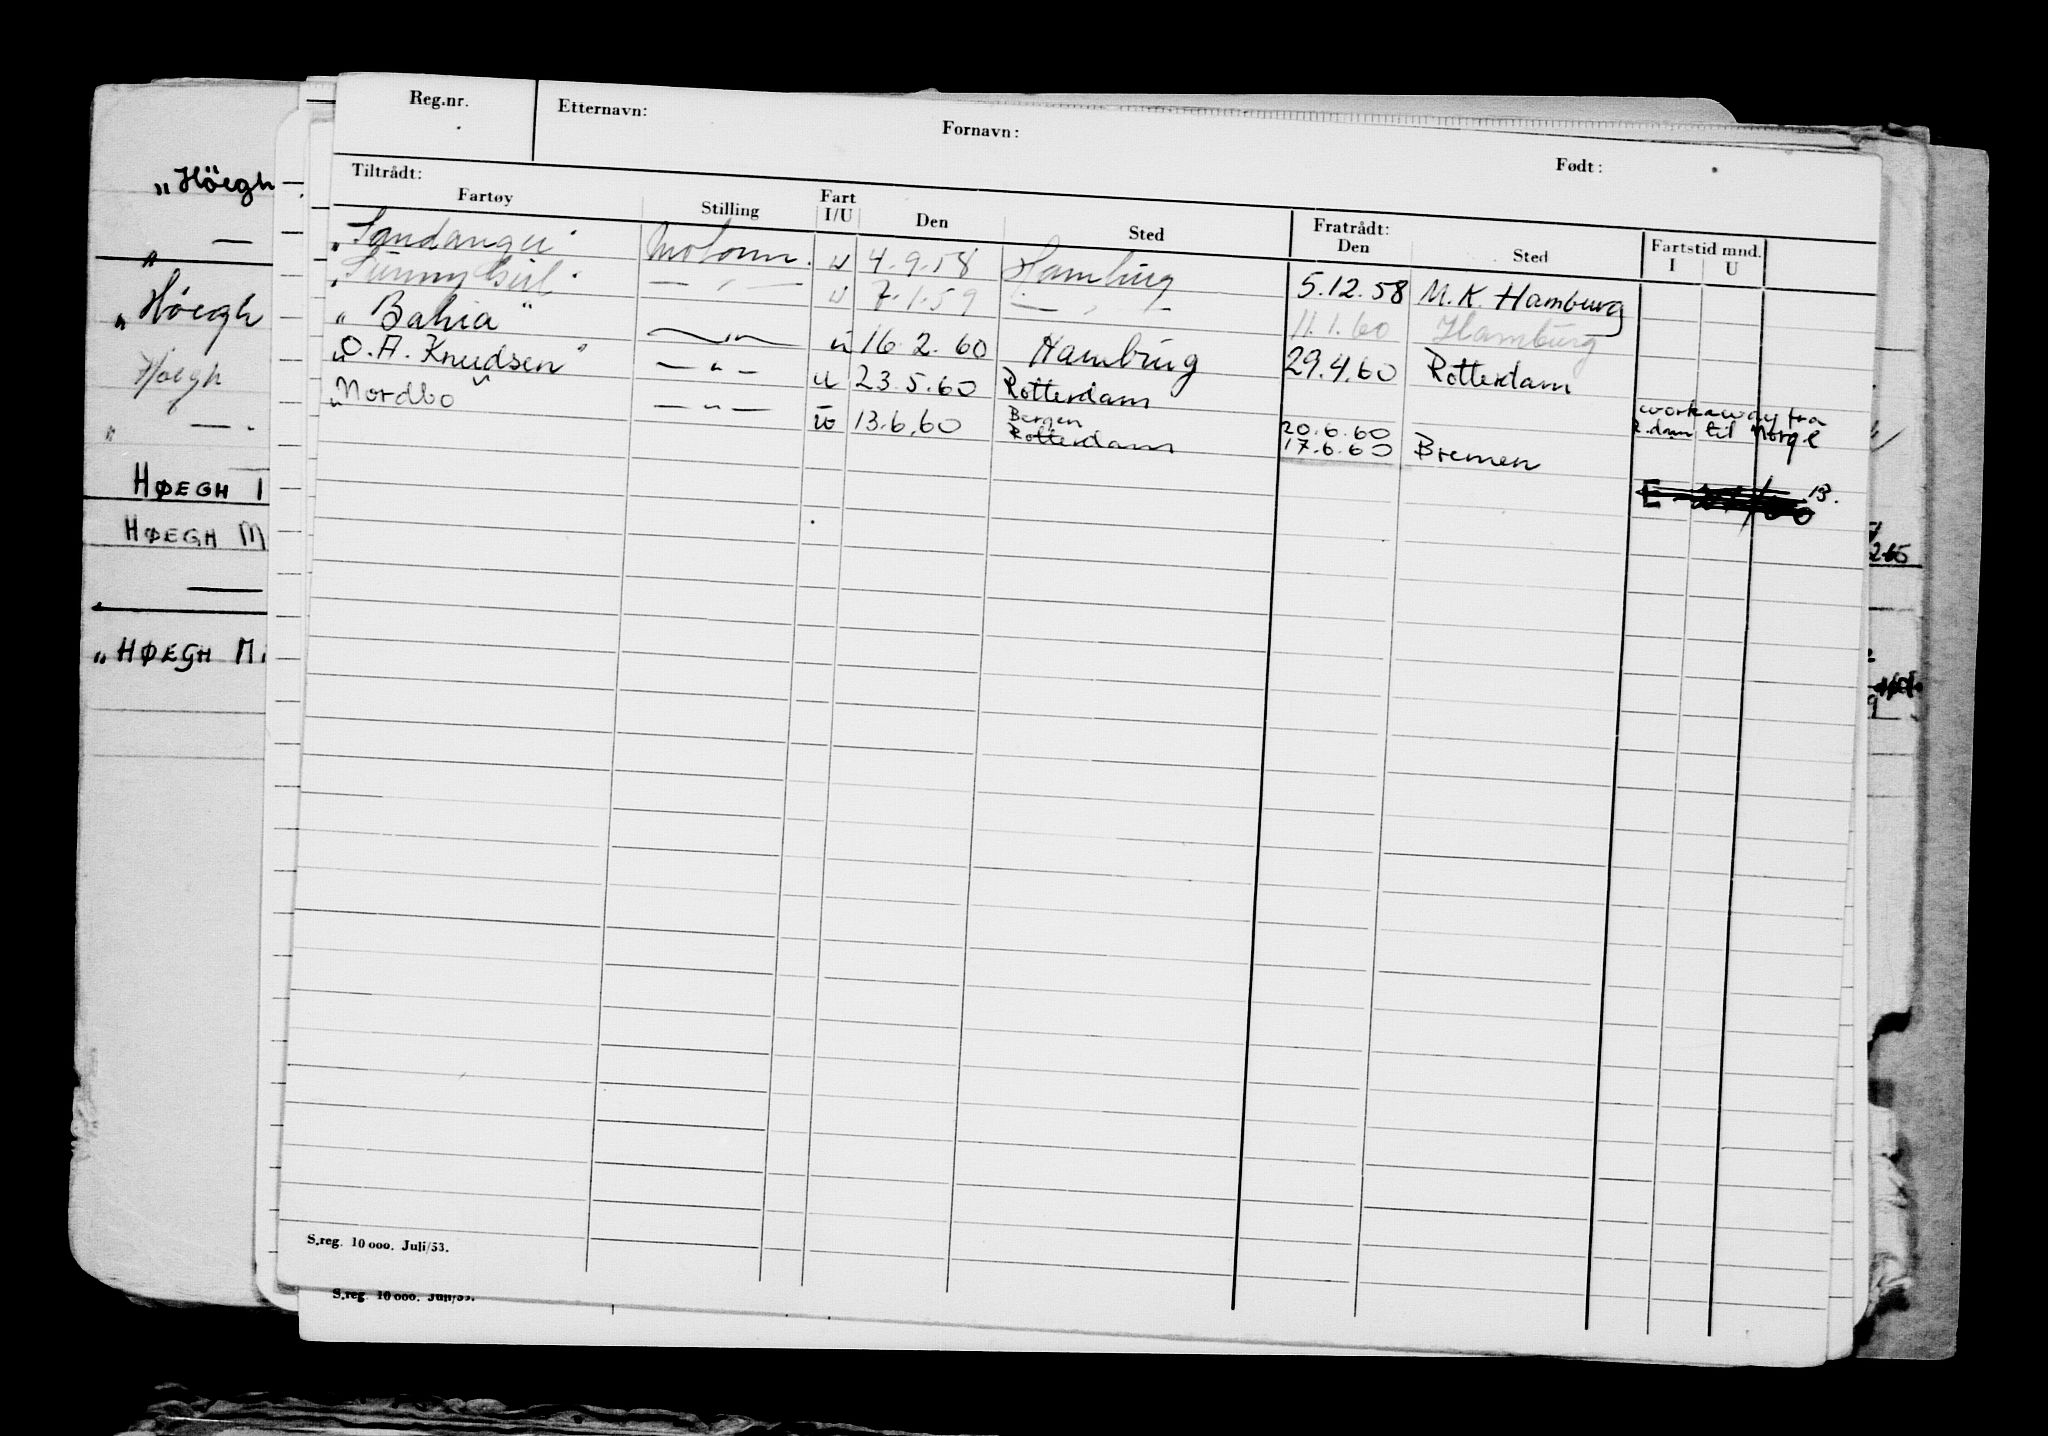 Reg.nr. Etternavn: Fornavn: Født:
Tiltrådt: Fratrådt: Fartstid mnd.
Fartøy Stilling Fart I/U Den Sted Den Sted I U
"Sandanger" Motorm. u 4.9.58 Hamburg 5.12.58 M.K. Hamburg
"Sunny Girl" — " — u 7.1.59 — " — 11.1.60 Hamburg
"Bahia" — " — u 16.2.60 Hamburg 29.4.60 Rotterdam
"O.A. Knudsen" — " — u 23.5.60 Rotterdam
"Nordbo" — " — u 13.6.60 Bergen 20.6.60 workaway fra
Rotterdam 17.6.60 Bremen R.dam til Norge
E 13.
S.reg. 10 000. Juli/53.
S.reg. 10 000. Juli/53.
"Höegh
" —
"Höegh
Höegh
" — "
HØEGH
HØEGH M
—
"HØEGH M